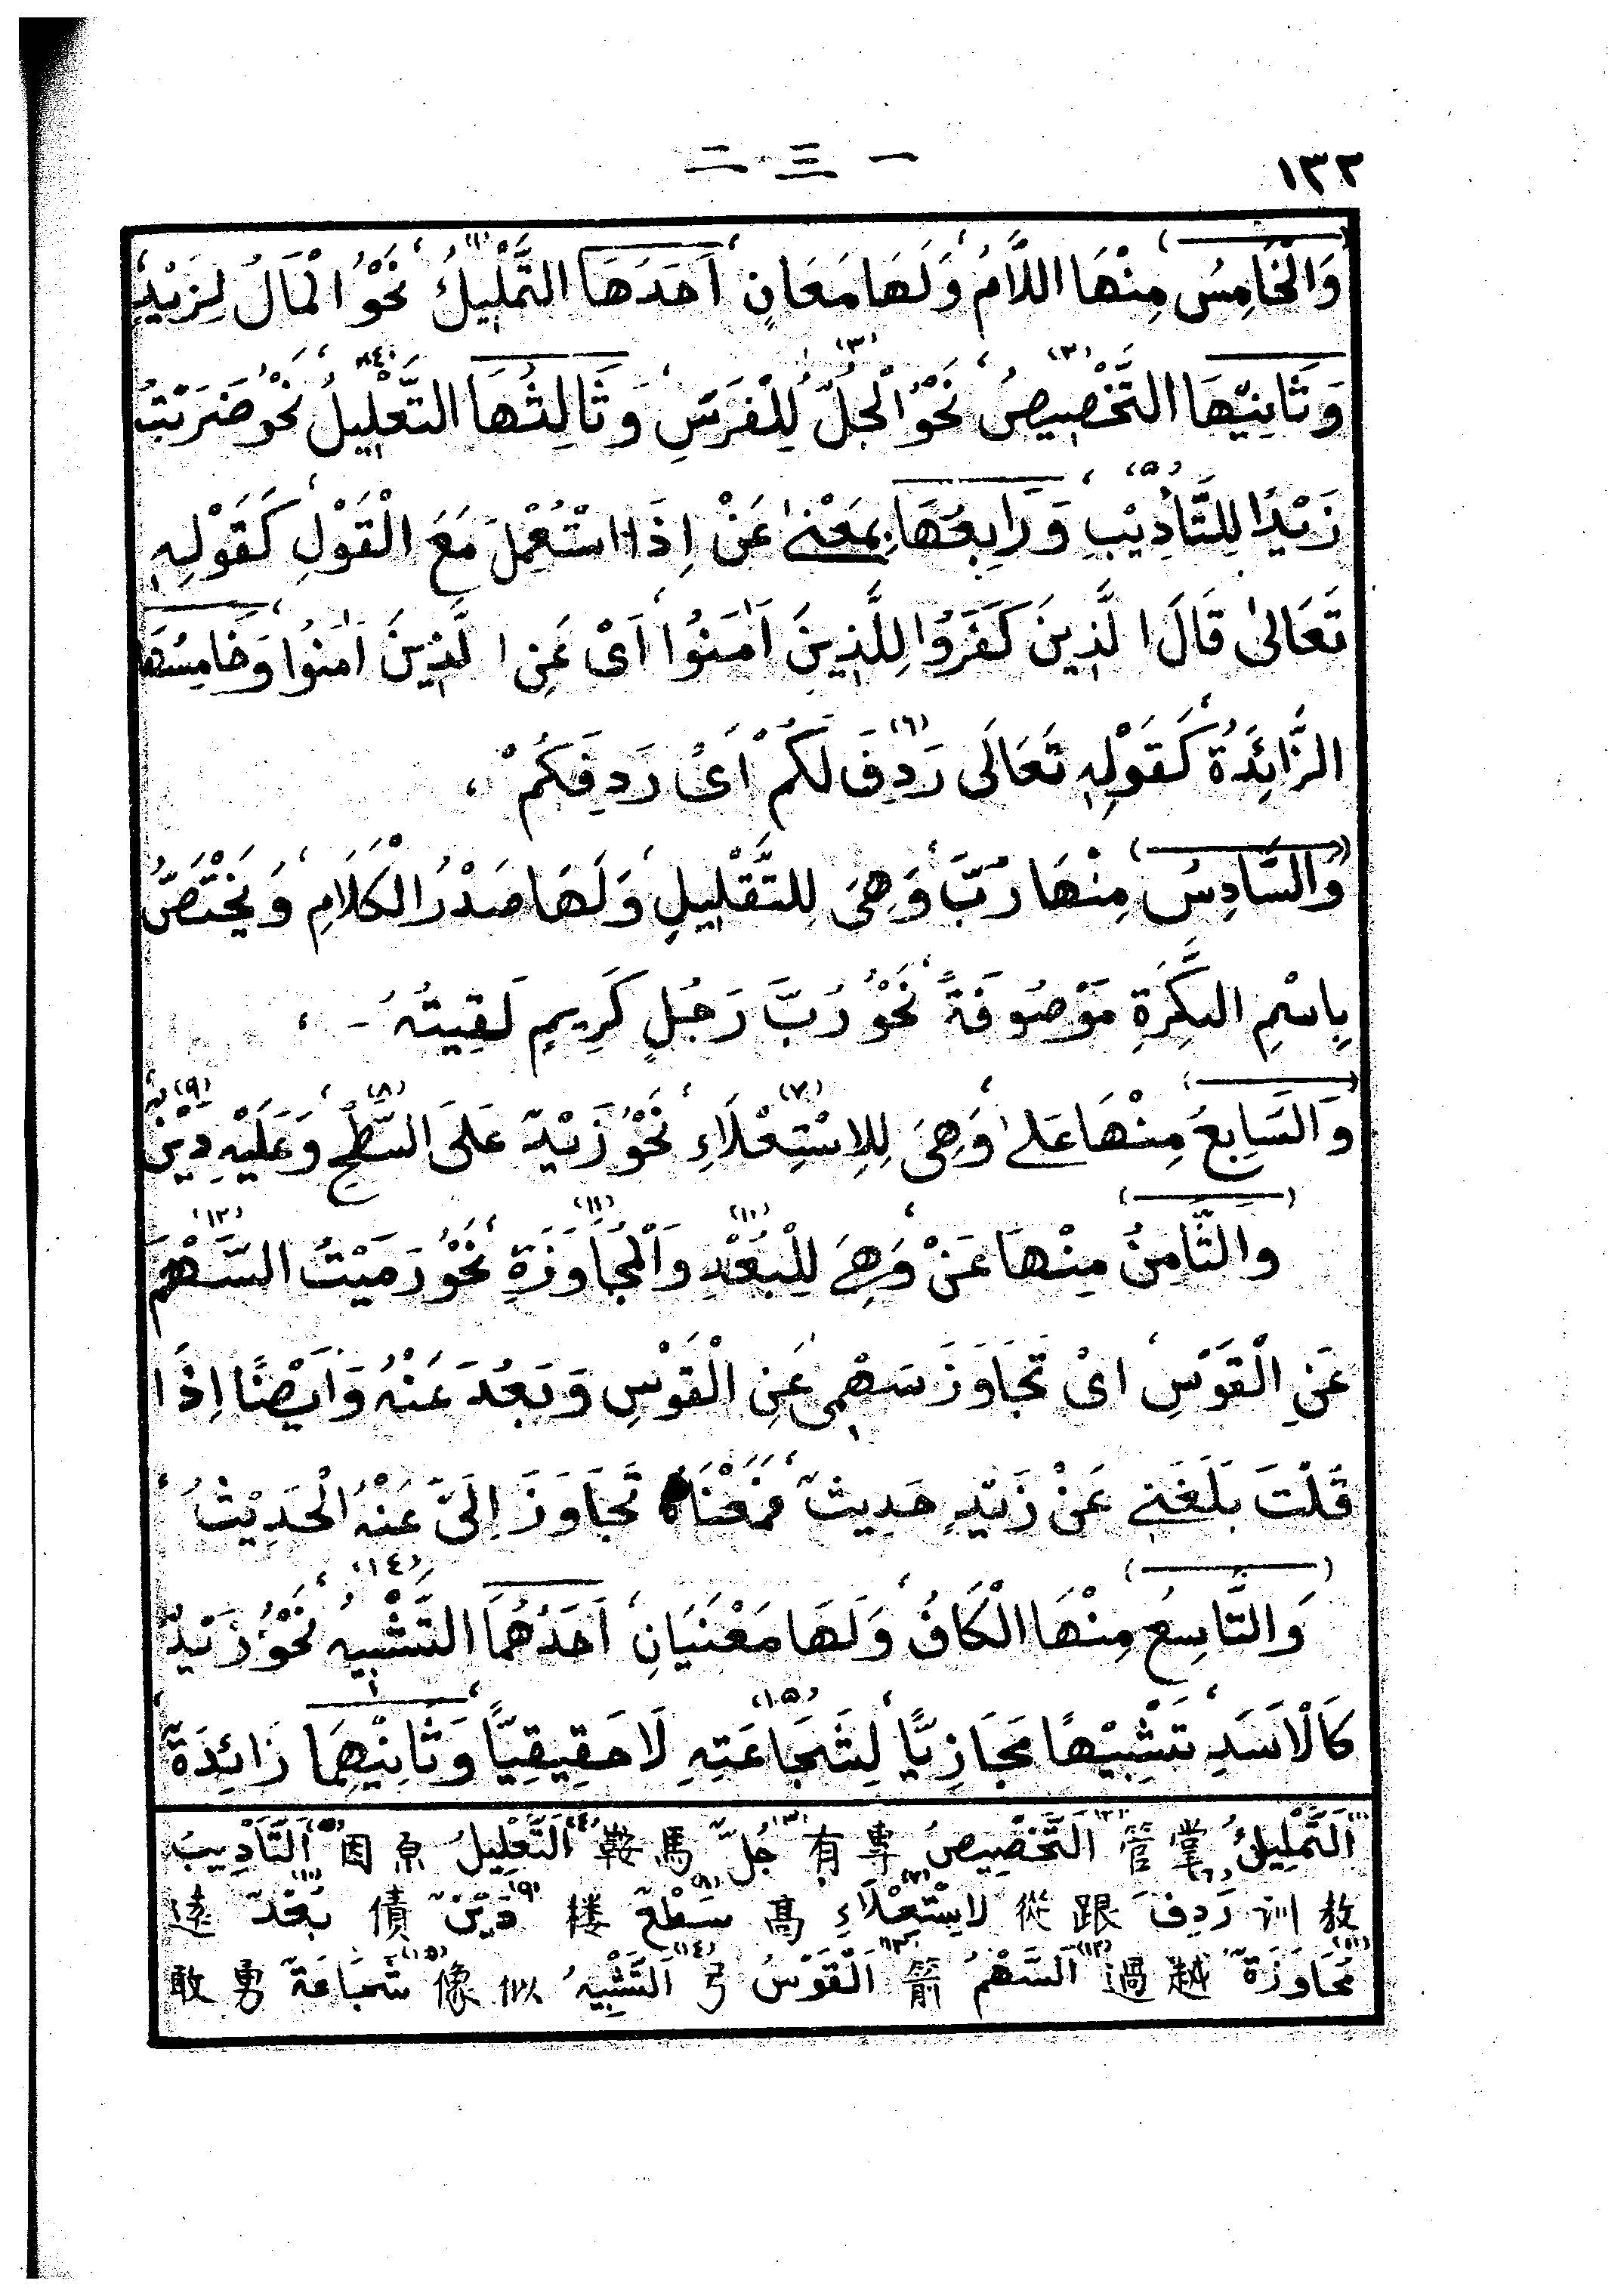 ١٣٢ 一三二
وَالْخَامِسُ مِنْهَا اللَّامُ، وَلَهَا مَعَانٍ، اَحَدُهَا التَّمْلِيْكُ (١)، نَحْوُ الْمَالُ لِزَيْدٍ،
وَثَانِيْهَا التَّخْصِيصُ (٢)، نَحْوُ الْجُلُّ (٣) لِلْفَرَسِ، وَثَالِثُهَا التَّعْلِيلُ (٤)، نَحْوُ ضَرَبْتُ
زَيْدًا لِلتَّأْدِيْبِ (٥)، وَرَابِعُهَا بِمَعْنىٰ عَنْ اِذَا اسْتُعْمِلَ مَعَ الْقَوْلِ، كَقَوْلِهٖ
تَعَالىٰ قَالَ الَّذِينَ كَفَرُوا لِلَّذِينَ اٰمَنُوا، اَىْ عَنِ الَّذِيْنَ اٰمَنُوا، وَخَامِسُهَا
الزَّائِدَةُ، كَقَوْلِهٖ تَعَالَى رَدِفَ (٦) لَكُمْ اَىْ رَدِفَكُمْ،
وَالسَّادِسُ مِنْهَا رُبَّ، وَهِىَ لِلتَّقْلِيلِ، وَلَهَا صَدْرُ الْكَلَامِ، وَيَخْتَصُّ
بِاسْمِ النَّكِرَةِ مَوْصُوفَةً، نَحْوُ رُبَّ رَجُلٍ كَرِيمٍ لَقِيتُهُ -،
وَالسَّابِعُ مِنْهَا عَلىٰ، وَهِىَ لِلاِسْتِعْلَاءِ (٧)، نَحْوُ زَيْدٌ عَلَى السَّطْحِ (٨)، وَعَلَيْهِ دَيْنٌ (٩)،
وَالثَّامِنُ مِنْهَا عَنْ، وَهِىَ لِلْبُعْدِ (١٠) وَالْمُجَاوَزَةِ (١١)، نَحْوُ رَمَيْتُ السَّهْمَ (١٢)
عَنِ الْقَوْسِ، اىْ تَجَاوَزَ سَهْمِىْ عَنِ الْقَوْسِ وَبَعُدَ عَنْهُ، وَاَيْضًا اِذَا
قُلْتَ بَلَغَنِى عَنْ زَيْدٍ حَدِيثٌ، فَمَعْنَاهُ تَجَاوَزَ اِلَىَّ عَنْهُ الْحَدِيْثُ،
وَالتَّاسِعُ مِنْهَا الْكَافُ، وَلَهَا مَعْنَيَانِ، اَحَدُهُمَا التَّشْبِيهُ (١٤)، نَحْوُ زَيْدٌ
كَالْاَسَدِ، تَشْبِيْهًا مَجَازِيًّا، لِشَجَاعَتِهِ (١٥) لَا حَقِيقِيًّا، وَثَانِيْهِمَا زَائِدَةٌ،
(١) اَلتَّمْلِيْكُ 掌管 (٢) اَلتَّخْصِيصُ 專有 (٣) جُلٌّ 馬鞍 (٤) اَلتَّعْلِيلُ 原因 (٥) اَلتَّأْدِيبُ
教训 (٦) رَدِفَ 跟從 (٧) لاِسْتِعْلَاءِ 高 (٨) سَطْحٌ 楼 (٩) دَيْنٌ 債 (١٠) بُعْدٌ 遠
(١١) مُجَاوَزَةٌ 越過 (١٢) اَلسَّهْمُ 箭 (١٣) اَلْقَوْسُ 弓 (١٤) اَلتَّشْبِيهُ 似像 (١٥) شَجَاعَةٌ 勇敢